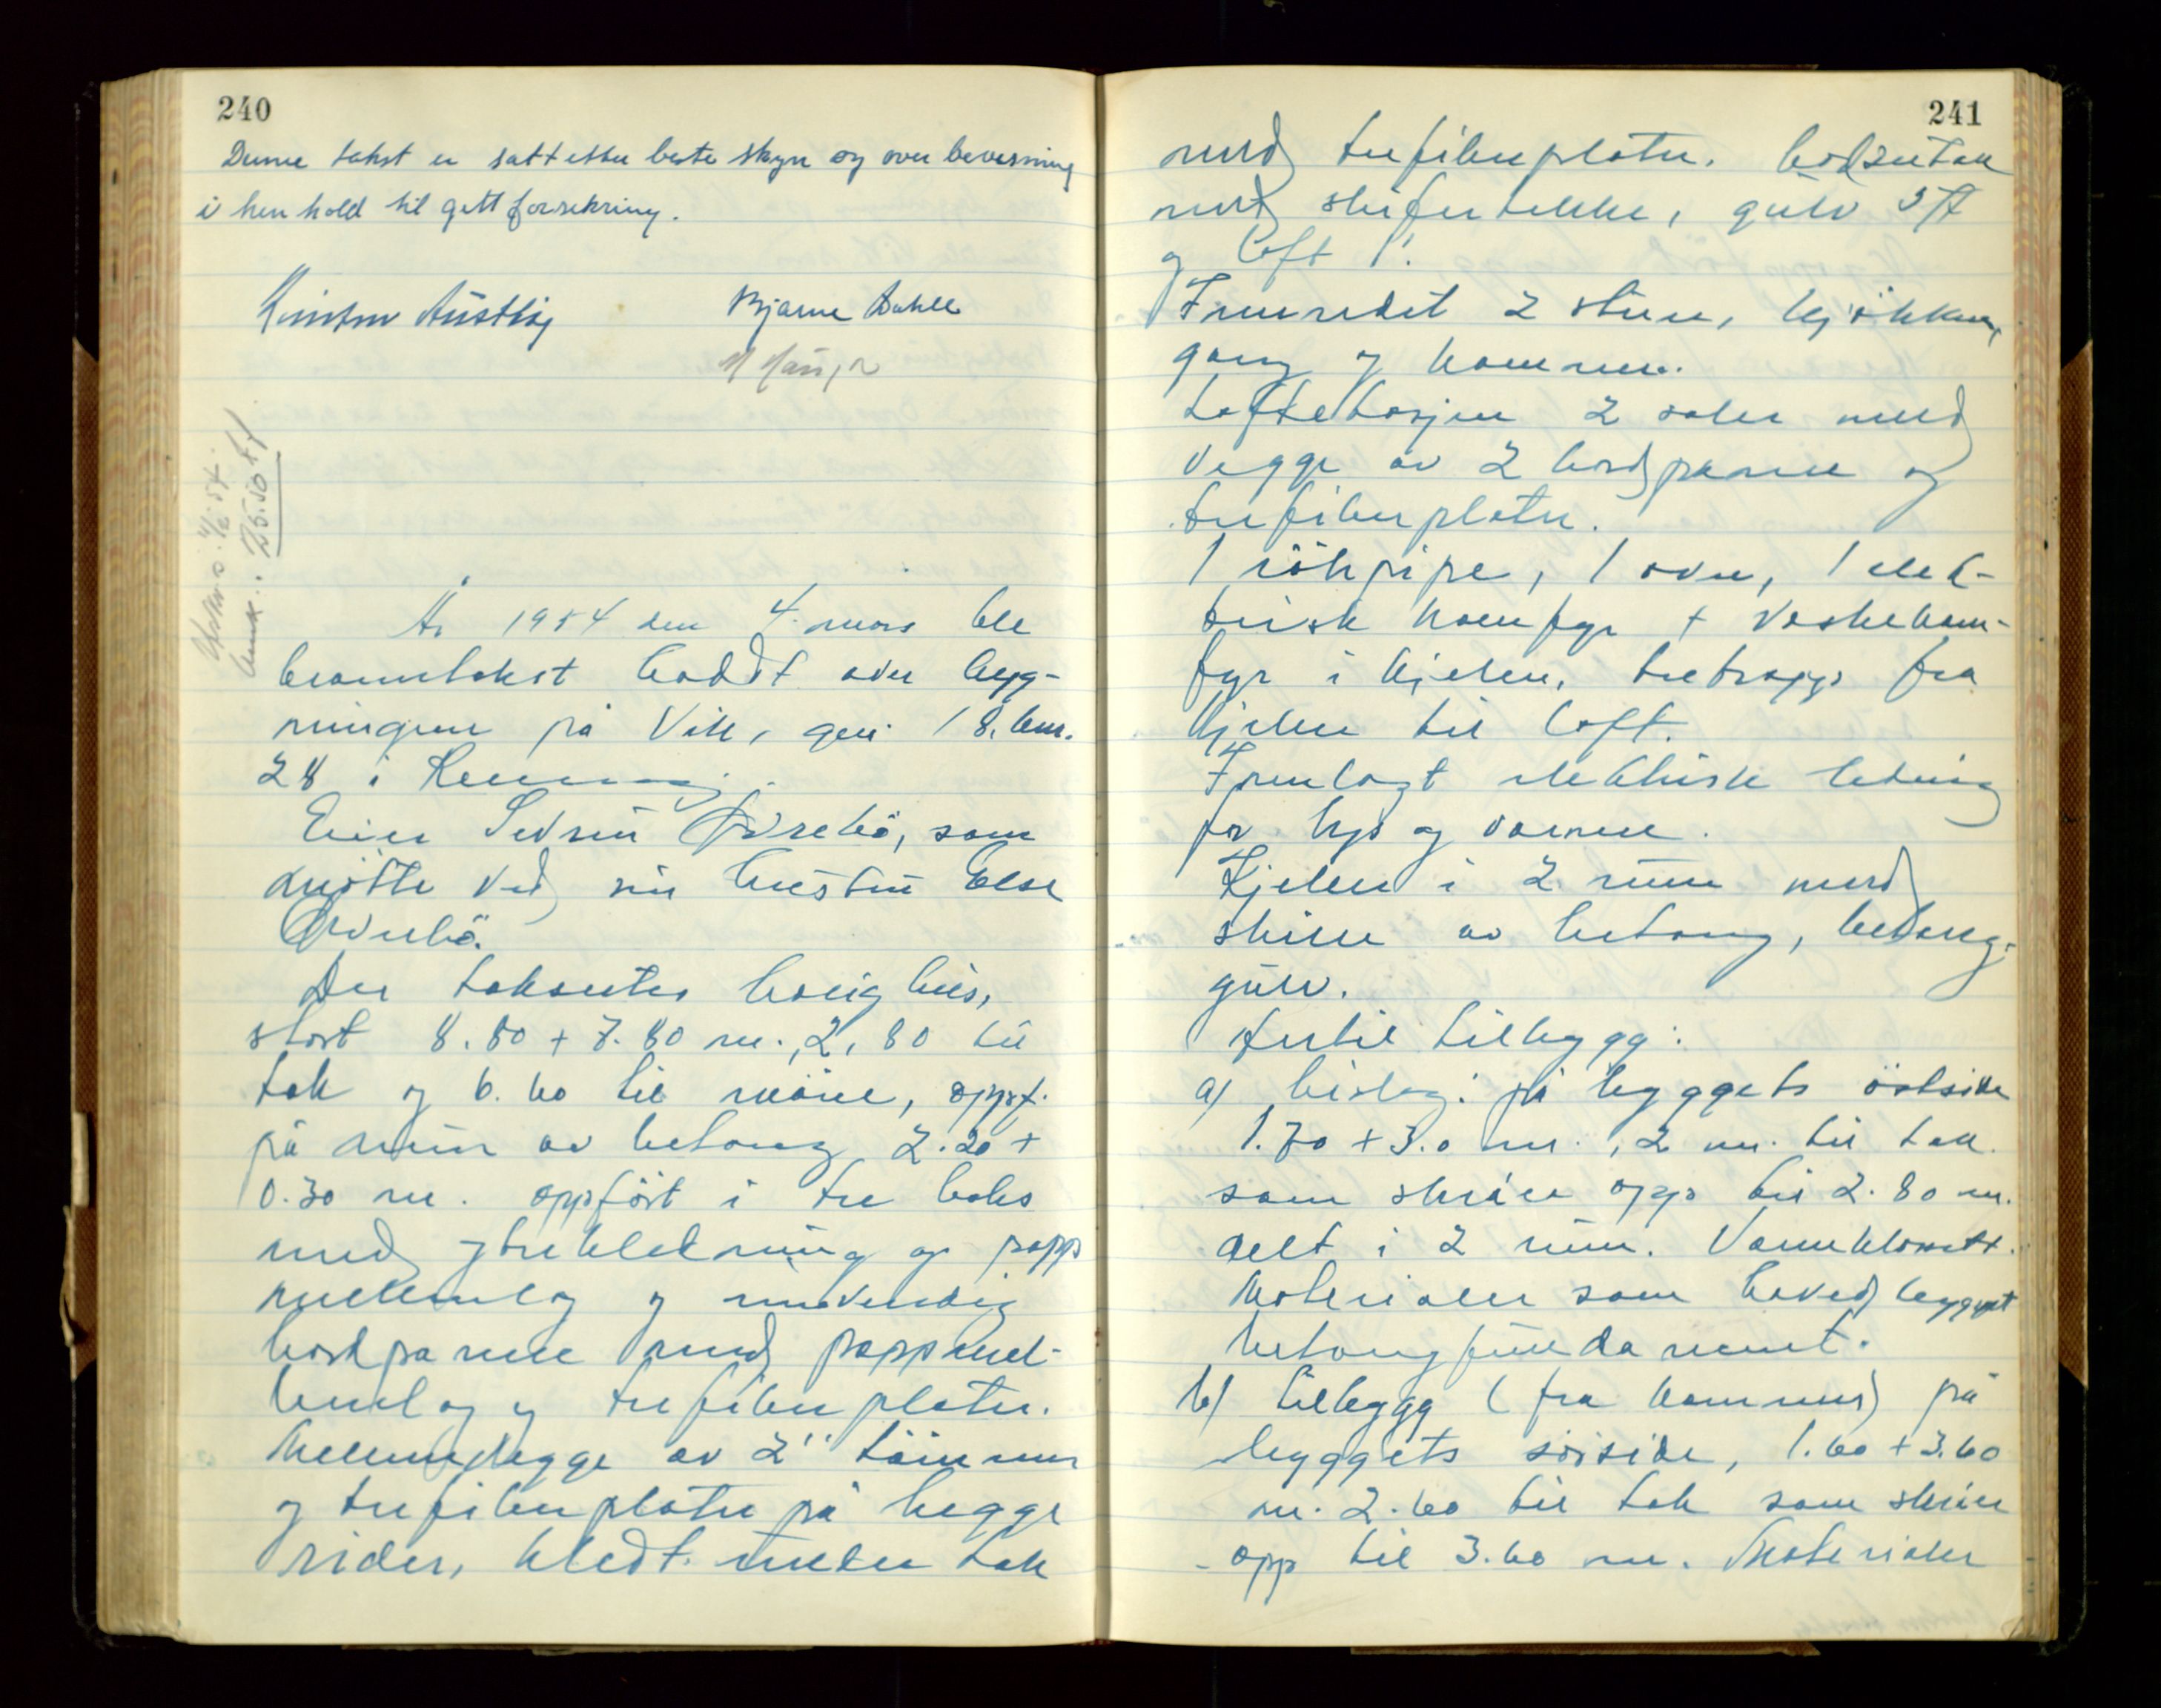 240
Denne takst er satt etter beste skjyn og over bevisning
i hen hold til gitt forsekring.
Kristen Austbø
Bjarne Dahle
Utskr. s. 4/6 54.
25.50
År 1954 den 4. mars ble
branntakst holdt over byg-
ningene på Vik, gnr. 18. bnr.
28 i
Eier Sevrin Øvrebö, som
møtte ved sin hustru Else
Øvrebö.
Der takseres bolighus,
stort 8.80 + 7.80 m., 2,80 til
tak og 6.60 til möne, oppf.
på mur av betong 2.20 +
0.30 m. oppfört i tre boks
med ytrekledning og papp
mellemlag og innvendig
bordpanne med pappmel-
lemlag og trefiberplater.
Mellemvegge av 2" tömmer
og trefiberplater på begge
sider, kledt under tak
241
med trefiberplater. bordsutak
med skifertekke, gulv 5/4
og loft 1".
Innredet 2 stuer, kjökken,
gang og kammer.
Loftetasjen 2 saler med
vegge av 2 bordpanne og
trefiberplater.
1 rökpipe, 1 ovn, 1 elek-
trisk komfyr + vaskekom-
fyr i kjeler, tretrapp fra
kjeler til loft.
Innlagt elektrisk ledning
for lys og varme.
Kjeler i 2 rum med
skille av betong, betong-
gulv.
Hertil tilbygg:
a) bislag: på byggets östside
1.70 + 3.0 m., 2 m. til tak
som skråer opp til 2.80 m.
delt i 2 rum. Vannklosett.
Materialer som hovedbygget
betongfundament.
b) tilbygg (fra kammers) på
byggets sörside, 1.60 + 3.60
m. 2.60 til tak som skråer
opp til 3.60 m. Materialer